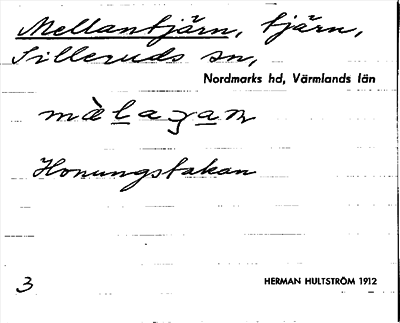 Mellantjärn, tjärn,
Silleruds sn,
Nordmarks hd, Värmlands län
Honungskakan
3
HERMAN HULTSTRÖM 1912